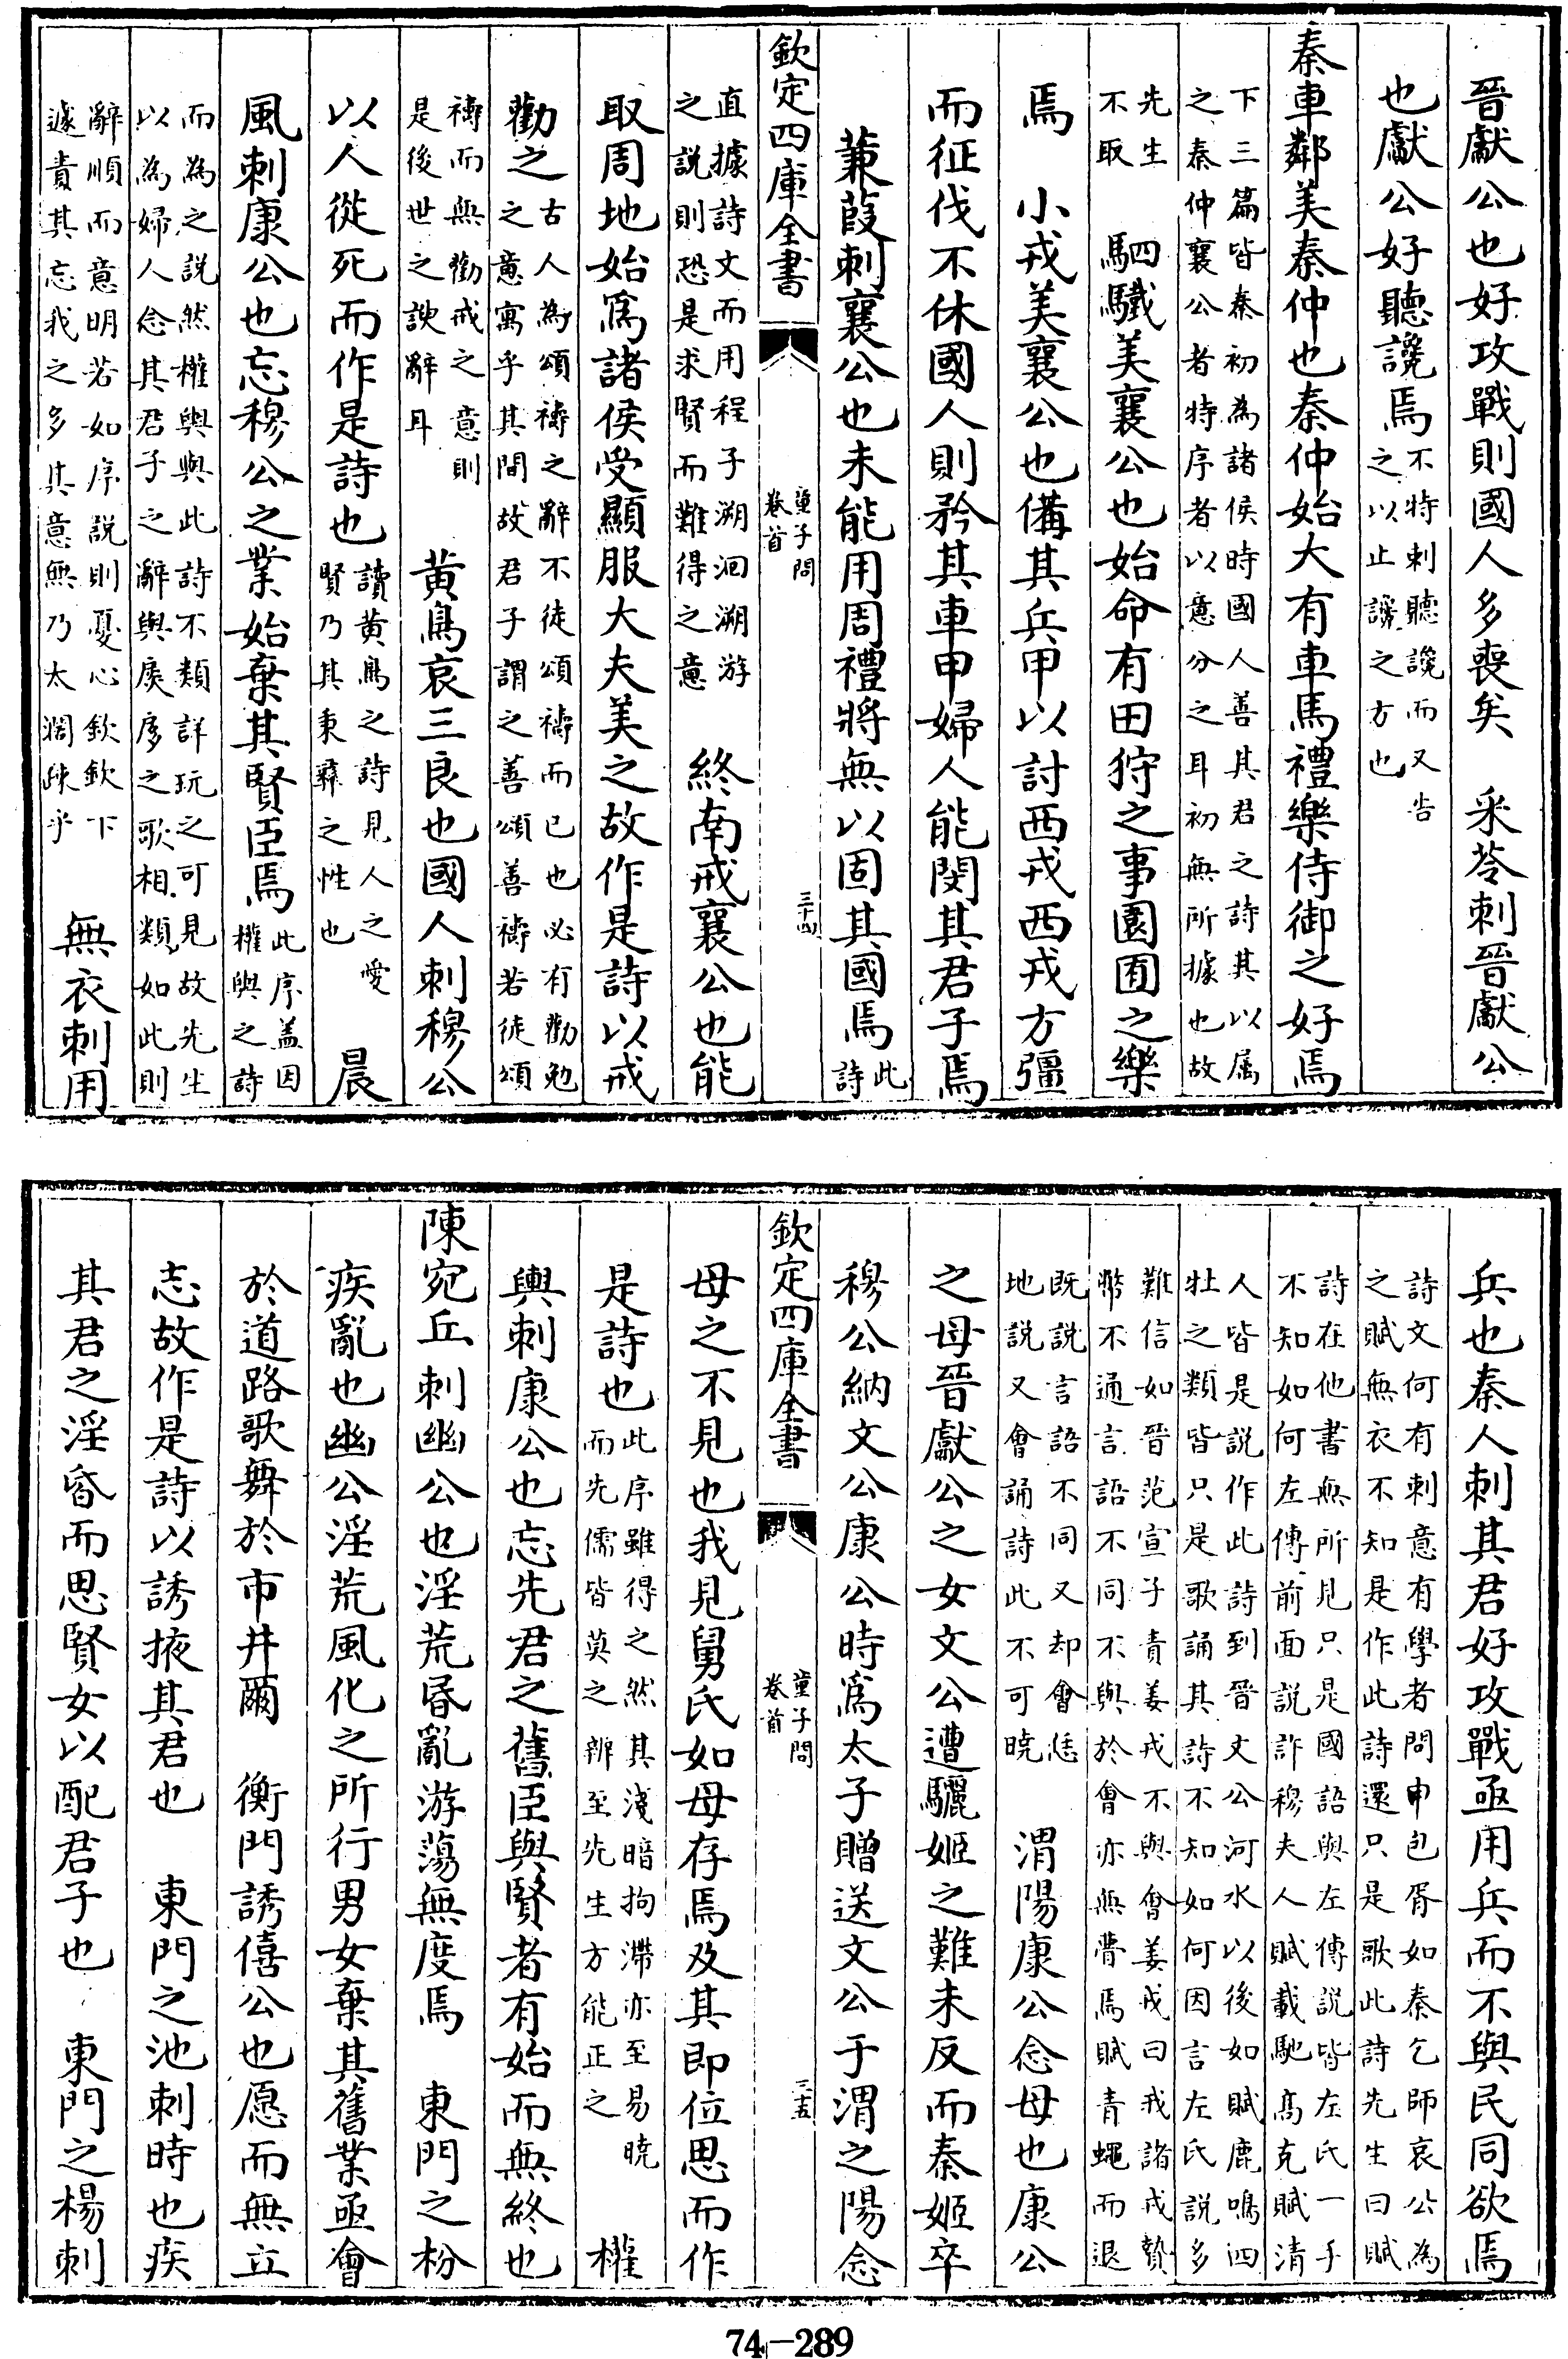 晉獻公也好攻戰則國人多喪矣　采苓刺晉獻公
也獻公好聽讒焉不特刺聽讒而又告
之以止讒之方也
秦車鄰美秦仲也秦仲始大有車馬禮樂侍御之好焉
下三篇皆秦初為諸侯時國人善其君之詩其以屬
之秦仲襄公者特序者以意分之耳初無所據也故
先生
不取　駟驖美襄公也始命有田狩之事園囿之樂
焉　小戎美襄公也備其兵甲以討西戎西戎方彊
而征伐不休國人則矜其車甲婦人能閔其君子焉
蒹葭刺襄公也未能用周禮將無以固其國焉此
詩
欽定四庫全書　童子問
卷首　三十四
直據詩文而用程子溯洄溯游
之說則恐是求賢而難得之意　終南戒襄公也能
取周地始為諸侯受顯服大夫美之故作是詩以戒
勸之古人為頌禱之辭不徒頌禱而已也必有勸勉
之意寓乎其間故君子謂之善頌善禱若徒頌
禱而無勸戒之意則
是後世之諛辭耳　黃鳥哀三良也國人刺穆公
以人從死而作是詩也讀黃鳥之詩見人之愛
賢乃其秉彛之性也　晨
風刺康公也忘穆公之業始棄其賢臣焉此序盖因
權輿之詩
而為之說然權輿與此詩不類詳玩之可見故先生
以為婦人念其君子之辭與扊扅之歌相類如此則
辭順而意明若如序說則憂心欽欽下
遽責其忘我之多其意無乃太濶疎乎　無衣刺用
兵也秦人刺其君好攻戰亟用兵而不與民同欲焉
詩文何有刺意有學者問申包胥如秦乞師哀公為
之賦無衣不知是作此詩還只是歌此詩先生曰賦
詩在他書無所見只是國語與左傳說皆左氏一手
不知如何左傳前面說許穆夫人賦載馳高克賦清
人皆是說作此詩到晉文公河水以後如賦鹿鳴四
牡之類皆只是歌誦其詩不知如何因言左氏說多
難信如晉范宣子責姜戎不與會姜戎曰我諸戎贄
幣不通言語不同不與於會亦無瞢焉賦青蠅而退
既說言語不同又却會恁
地說又會誦詩此不可曉　渭陽康公念母也康公
之母晉獻公之女文公遭驪姬之難未反而秦姬卒
穆公納文公康公時為太子贈送文公于渭之陽念
欽定四庫全書　童子問
卷首　三十五
母之不見也我見舅氏如母存焉及其即位思而作
是詩也此序雖得之然其淺暗拘滯亦至易曉
而先儒皆莫之辨至先生方能正之　權
輿刺康公也忘先君之舊臣與賢者有始而無終也
陳宛丘刺幽公也淫荒昏亂游蕩無度焉　東門之枌
疾亂也幽公淫荒風化之所行男女棄其舊業亟會
於道路歌舞於市井爾　衡門誘僖公也愿而無立
志故作是詩以誘掖其君也　東門之池刺時也疾
其君之淫昏而思賢女以配君子也　東門之楊刺
74-289